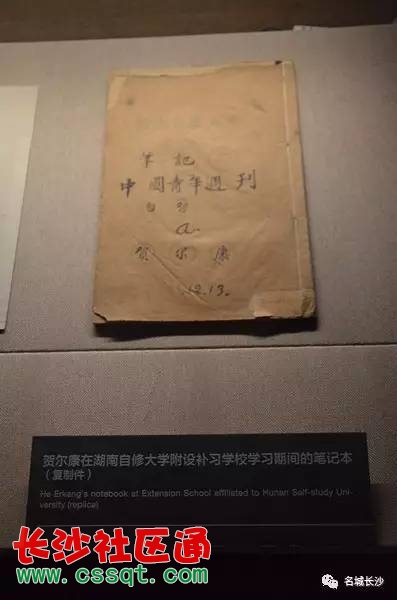 筆 記
中國青年週刊
自習
a.
贺尔康
12.13.
贺尔康在湖南自修大学附设补习学校学习期间的笔记本
（复制件）
He Erkang's notebook at Extension School affiliated to Hunan Self-study Uni-
versity (replica)
长沙社区通
www.cssqt.com
名城长沙